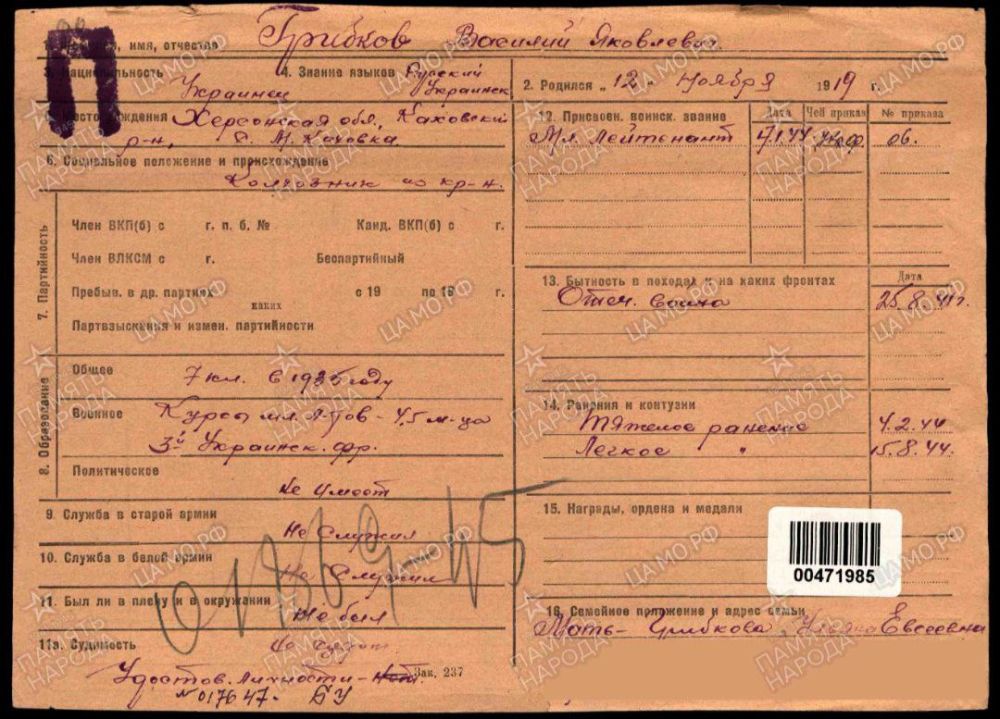 П
1. , имя, отчество Грибков Василий Яковлевич.
3. Национальность Украинец
4. Знание языков Русский Украинск
2. Родился „12" Ноября 1919 г.
5. Место рождения Херсонская обл. Каховский
р-н, с. М. Каховка
6. Социальное положение и происхождение
Колхозник из кр-н.
7. Партийность
Член ВКП(б) с г. п. б. № Канд. ВКП(б) с г.
Член ВЛКСМ с г. Беспартийный
Пребыв. в др. партиях с 19 по 19 г.
каких
Партвзыскания и измен. партийности
8. Образование
Общее 7 кл. в 1935 году
Военное Курсы мл. л-тов - 4,5 м-ца
3й Украинск. фр.
Политическое
Не имеет
9. Служба в старой армии
Не служил
10. Служба в белой армии
Не служил
11. Был ли в плену и в окружении
Не был
11а. Судимость
Не судит.
Зак. 237
Удостов. личности -
№ 017647. БУ
12. Присвоен. воинск. звание Дата Чей приказ № приказа
Мл. Лейтенант 06.
13. Бытность в походах и на каких фронтах Дата
Отеч. война 25.8.41г.
14. Ранения и контузии
Тяжелое ранение 4.2.44.
Легкое " 15.8.44.
15. Награды, ордена и медали
00471985
16. Семейное положение и адрес семьи
Мать - Грибкова Ульяна Евсеевна
ПАМЯТЬ НАРОДА
ЦАМО.РФ